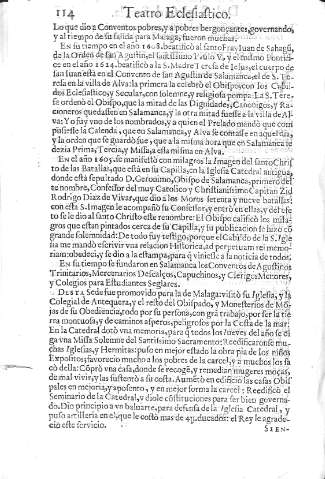 114 Teatro Eclesiastico.
Lo que dio a Conventos pobres, y a pobres bergonçantes, governando,
y al tiempo de su salida para Malaga, fueron muchas.
En su tiempo en el año 1608. beatificò al santo Fray Iuan de Sahagũ,
de la Orden de san Agustin, el santissimo Paulo V. y el mismo Pontifi-
ce en el año 1614. beatificò a la S. Madre Teresa de Iesus, el cuerpo de
san Iuan està en el Convento de san Agustin de Salamanca, el de S. Te-
resa en la villa de Alva: la primera la celebrò el Obispo, con los Cabil-
dos Eclesiastico, y Secular, con solemne, y religiosa pompa. La S. Tere-
se ordenò el Obispo, que la mitad de las Dignidades, Canonigos, y Ra-
cioneros quedassen en Salamanca, y la otra mitad fuesse a la villa de Al-
va: Yo fuy vno de los nombrados, y a quien el Prelado mandò que com
pusiesse la Calenda, que en Salamanca, y Alva se cantasse en aquel dia,
y la orden que se guardò fue, que a la misma hora que en Salamanca se
dezia Prima, Tercia, y Missa, essa misma en Alva.
En el año 1605. se manifestò con milagros la Imagen del santo Chris
to de las Batallas, que està en su Capilla, en la Iglesia Catedral antigua,
donde està sepultado D. Geronimo, Obispo de Salamanca, primero del
te nombre, Confessor del muy Catolico y Christianissimo Capitan Zid
Rodrigo Diaz de Vivar, que dio a los Moros setenta y nueve batallas:
con esta S. Imagen le acompañò su Confessor, y entrò en ellas, y del efe
to se le dio al santo Christo este renombre: El Obispo calificò los mila-
gros que estan pintados cerca de su Capilla, y su publicacion se hizo cõ
grande solemnidad: De todo fuy testigo, porque el Cabildo de la S. Igle
sia me mandò escrivir vna relacion Historica, ad perpetuam rei memo-
riam: obedeci, y se dio a la estampa, para q̃ viniesse a la noticia de todos.
En su tiempo se fundaron en Salamanca los Conventos de Agustinos
Trinitarios, Mercenarios Descalços, Capuchinos, y Clerigos Menores,
y Colegios para Estudiantes Seglares.
Desta Sede fue promovido para la de Malaga: visitò su Iglesia, y la
Colegial de Antequera, y el resto del Obispado, y Monesterios de Mõ-
jas de su Obediencia, todo por su persona, con grã trabajo, por ser la tie
rra montuosa, y de caminos asperos, y peligrosos por la Costa de la mar:
En la Catedral dotò vna memoria, para q̃ todos los Iueves del año se di
ga vna Missa Solemne del Santissimo Sacramento: Reedificaronse mu-
chas Iglesias, y Hermitas: puso en mejor estado la obra pia de los niños
Expositos, favoreciò mucho a los pobres de la carcel, y a muchos los sa
cò della: Cõprò vna casa, donde se recogẽ, y remedian mugeres moças,
de mal vivir, y las sustentò a su costa. Aumentò en edificio las casas Obis
pales en mejoria, y aposento, y en mejor forma la carcel: Reedificò el
Seminario de la Catedral, y diole constituciones para ser bien governa-
do. Dio principio a vn baluarte, para defensa de la Iglesia Catedral, y
puso artilleria en el, que le costò mas de 4µ. ducados: el Rey le agrade-
ciò este servicio.
SIEN-